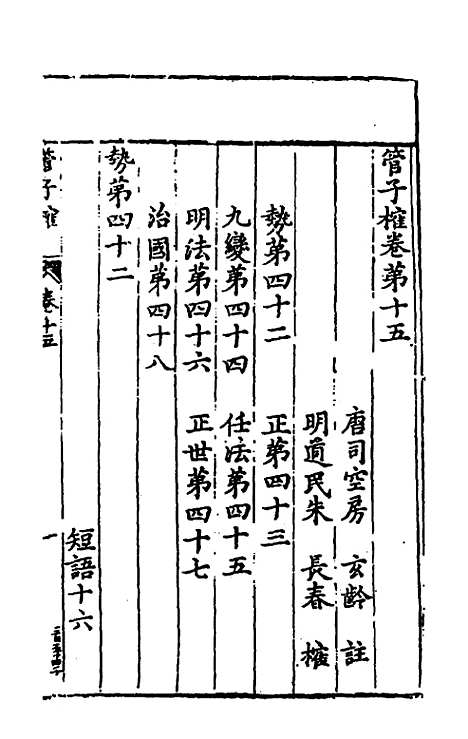 管子榷卷第十五
唐司空房　玄齡　註
明道民朱　長春　榷
勢第四十二　正第四十三
九變第四十四　任法第四十五
明法第四十六　正世第四十七
治國第四十八
勢第四十二
短語十六
管子榷　卷十五　一